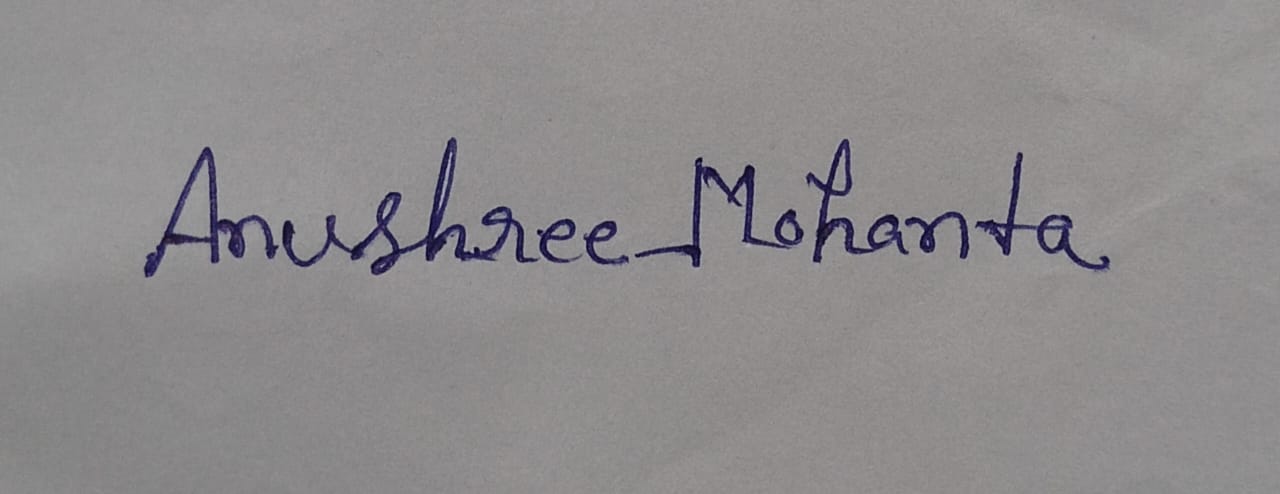 Anushree Mohanta